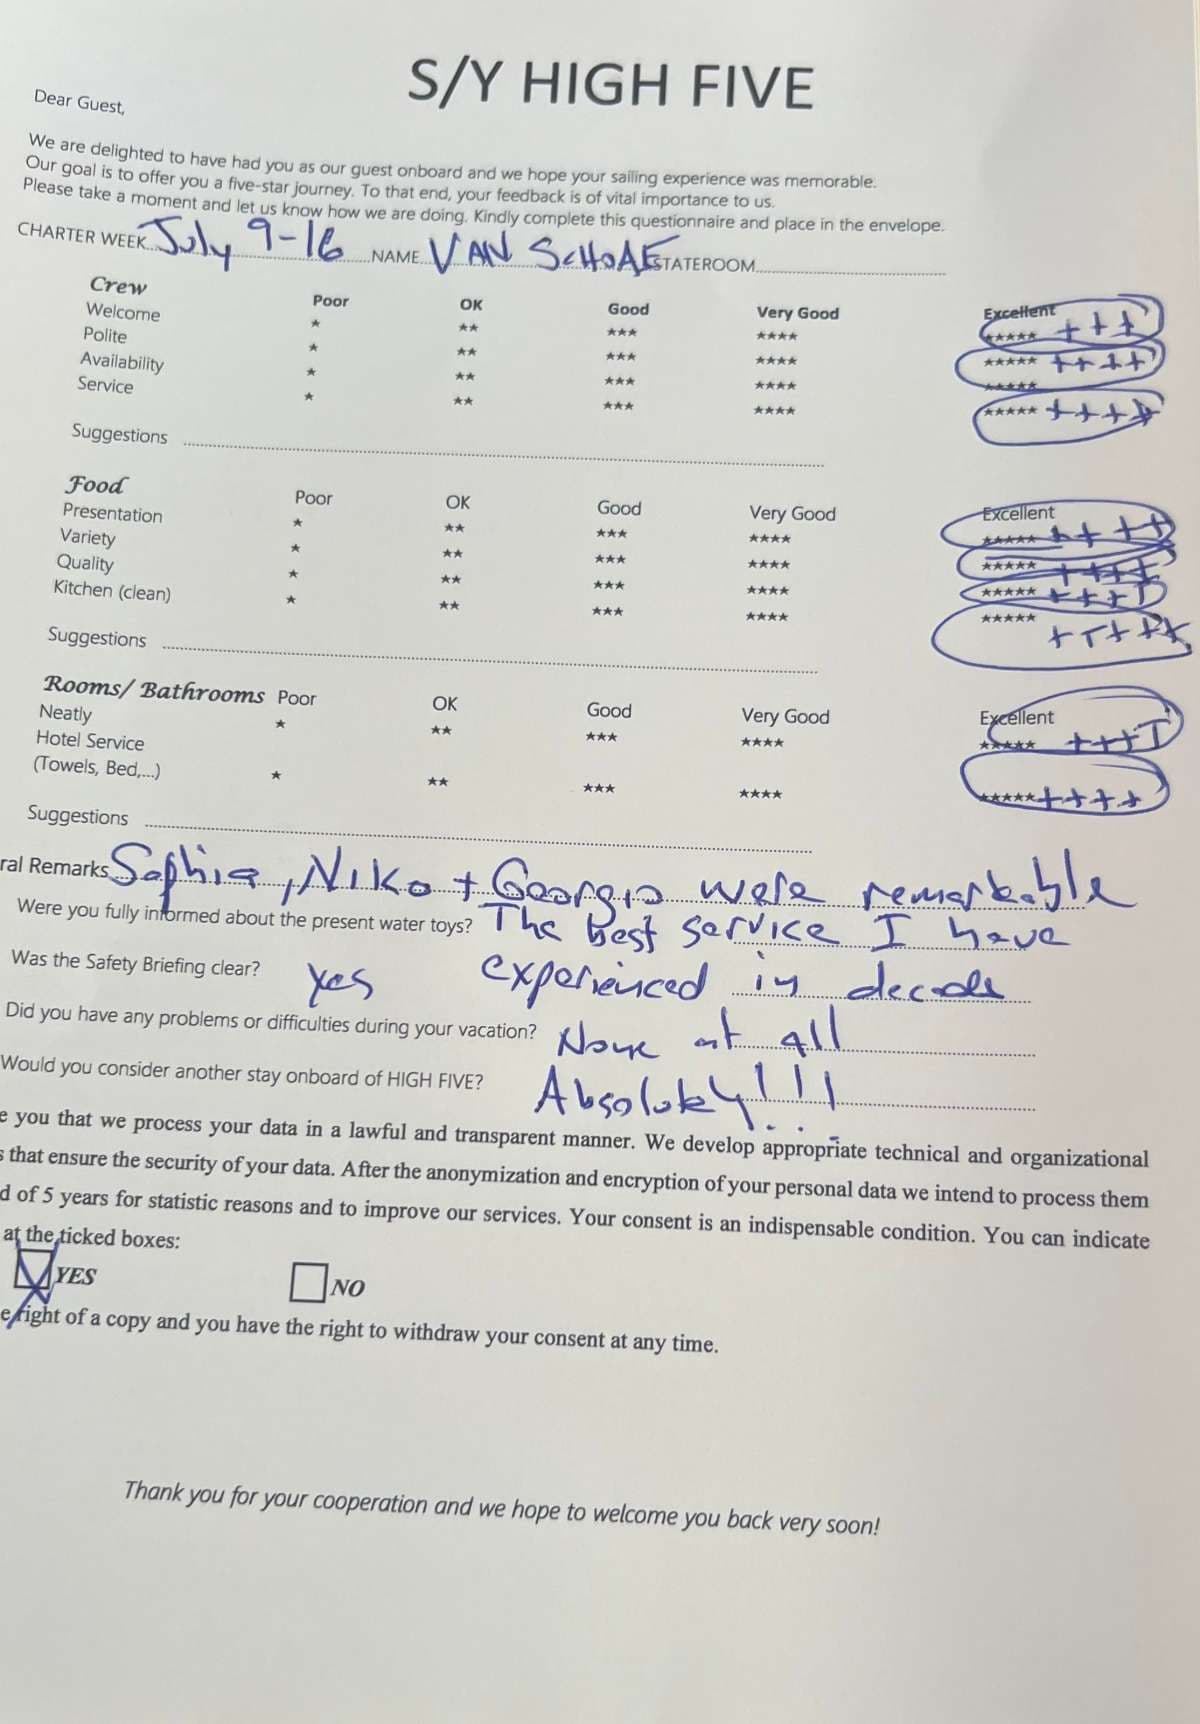 S/Y HIGH FIVE
Dear Guest,
We are delighted to have had you as our guest onboard and we hope your sailing experience was memorable.
Our goal is to offer you a five-star journey. To that end, your feedback is of vital importance to us.
Please take a moment and let us know how we are doing. Kindly complete this questionnaire and place in the envelope.
CHARTER WEEK July 9-16 NAME VAN SCHOAE STATEROOM
Crew Poor OK Good Very Good Excellent
Welcome ★ ★★ ★★★ ★★★★ ★★★★★ +++
Polite ★ ★★ ★★★ ★★★★ ★★★★★ ++++
Availability ★ ★★ ★★★ ★★★★ ★★★★★
Service ★ ★★ ★★★ ★★★★ ★★★★★ ++++
Suggestions
Food Poor OK Good Very Good Excellent
Presentation ★ ★★ ★★★ ★★★★ ★★★★★ ++++
Variety ★ ★★ ★★★ ★★★★ ★★★★★ ++++
Quality ★ ★★ ★★★ ★★★★ ★★★★★ ++++
Kitchen (clean) ★ ★★ ★★★ ★★★★ ★★★★★ +++++
Suggestions
Rooms/ Bathrooms Poor OK Good Very Good Excellent
Neatly ★ ★★ ★★★ ★★★★ ★★★★★ ++++
Hotel Service
(Towels, Bed,...) ★ ★★ ★★★ ★★★★ ★★★★★ ++++
Suggestions
ral Remarks Sophia, Niko + Georgio were remarkable
Were you fully informed about the present water toys? The best service I have
Was the Safety Briefing clear? Yes experienced in decade
Did you have any problems or difficulties during your vacation? None at all
Would you consider another stay onboard of HIGH FIVE? Absolutely!!!
e you that we process your data in a lawful and transparent manner. We develop appropriate technical and organizational
s that ensure the security of your data. After the anonymization and encryption of your personal data we intend to process them
d of 5 years for statistic reasons and to improve our services. Your consent is an indispensable condition. You can indicate
at the ticked boxes:
YES NO
e right of a copy and you have the right to withdraw your consent at any time.
Thank you for your cooperation and we hope to welcome you back very soon!